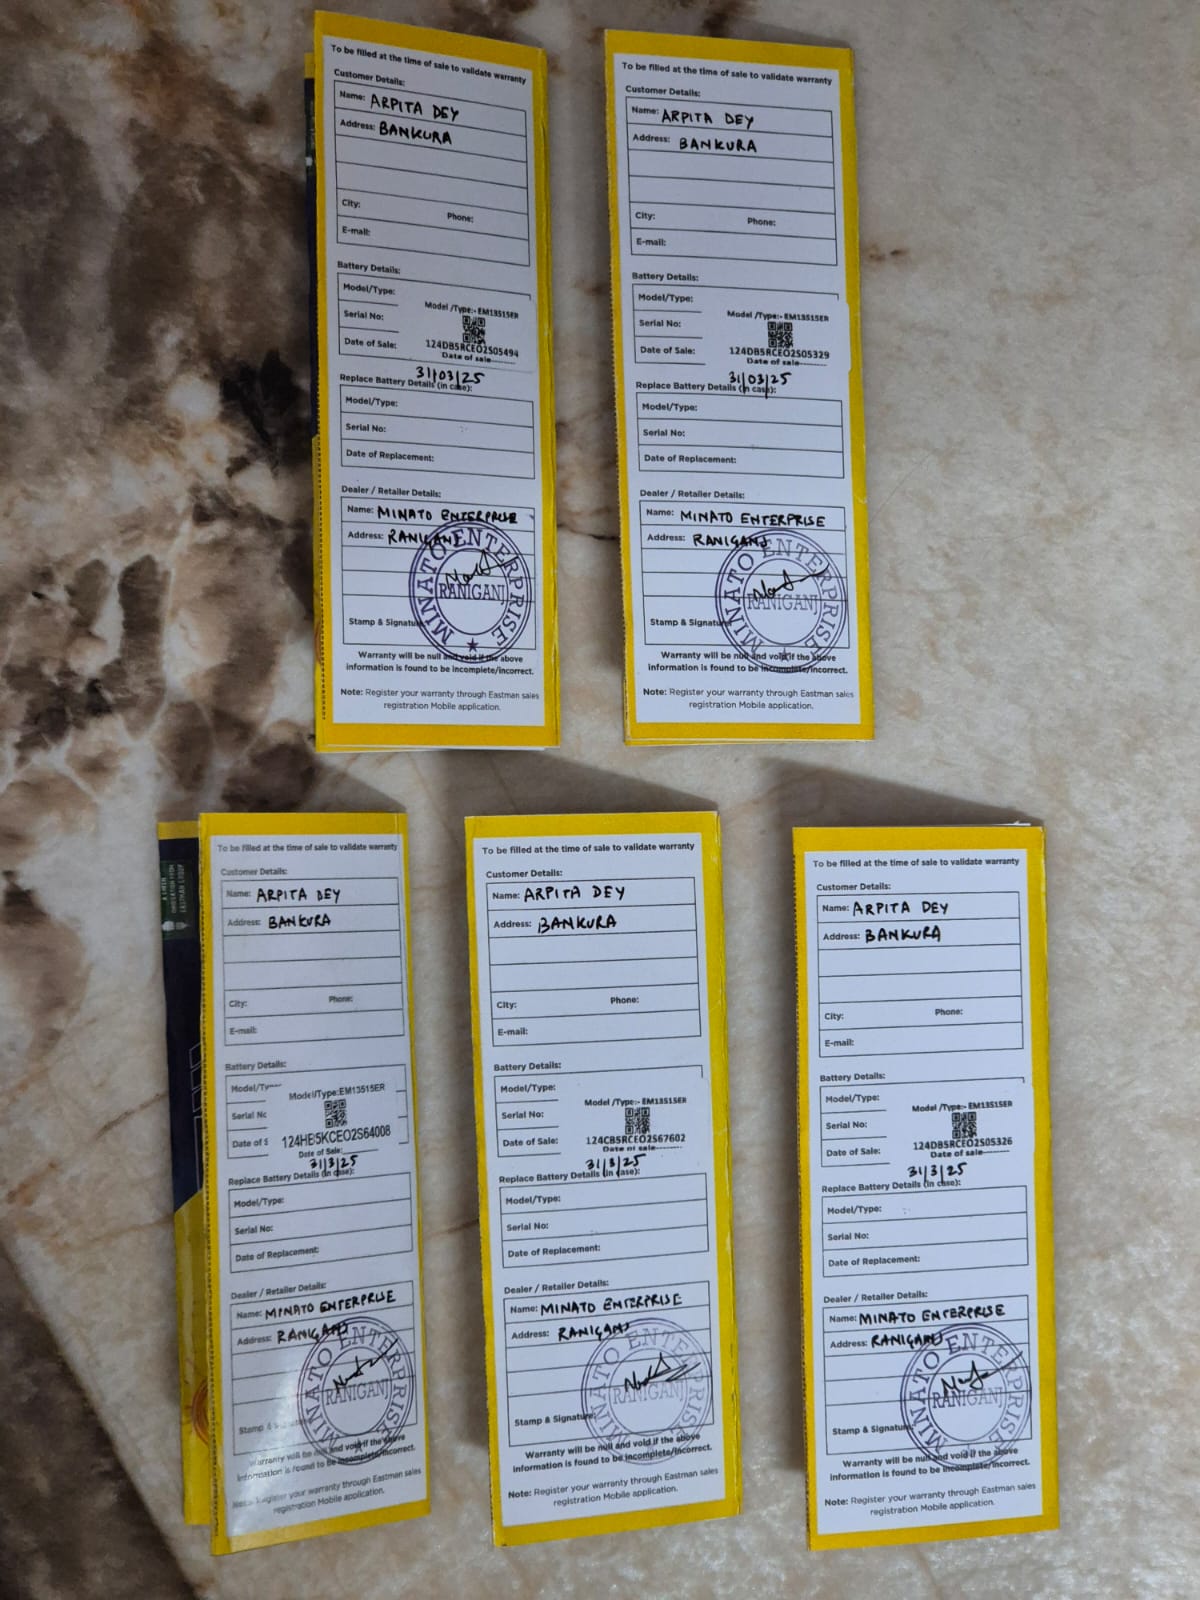 To be filled at the time of sale to validate warranty
Customer Details:
Name: ARPITA DEY
Address: BANKURA
City: Phone:
E-mail:
Battery Details:
Model/Type:
Model /Type:- EM13515ER
Serial No:
124DB5RCEO2S05494
Date of Sale:
Date of sale--------
31/03/25
Replace Battery Details (in case):
Model/Type:
Serial No:
Date of Replacement:
Dealer / Retailer Details:
Name: MINATO ENTERPRISE
Address: RANIGANJ
MINATO ENTERPRISE
RANIGANJ
Stamp & Signature
Warranty will be null and void if the above
information is found to be incomplete/incorrect.
Note: Register your warranty through Eastman sales
registration Mobile application.
To be filled at the time of sale to validate warranty
Customer Details:
Name: ARPITA DEY
Address: BANKURA
City: Phone:
E-mail:
Battery Details:
Model/Type:
Model /Type:- EM13515ER
Serial No:
124DB5RCEO2S05329
Date of Sale:
Date of sale--------
31/03/25
Replace Battery Details (in case):
Model/Type:
Serial No:
Date of Replacement:
Dealer / Retailer Details:
Name: MINATO ENTERPRISE
Address: RANIGANJ
MINATO ENTERPRISE
RANIGANJ
Stamp & Signature
Warranty will be null and void if the above
information is found to be incomplete/incorrect.
Note: Register your warranty through Eastman sales
registration Mobile application.
To be filled at the time of sale to validate warranty
Customer Details:
Name: ARPITA DEY
Address: BANKURA
City: Phone:
E-mail:
Battery Details:
Model/Type
Model/Type:EM13515ER
Serial No
124HB5KCEO2S64008
Date of S
Date of Sale:
31/3/25
Replace Battery Details (in case):
Model/Type:
Serial No:
Date of Replacement:
Dealer / Retailer Details:
Name: MINATO ENTERPRISE
Address: RANIGANJ
MINATO ENTERPRISE
RANIGANJ
Stamp &
Warranty will be null and void if the above
information is found to be incomplete/incorrect.
Note: Register your warranty through Eastman sales
registration Mobile application.
To be filled at the time of sale to validate warranty
Customer Details:
Name: ARPITA DEY
Address: BANKURA
City: Phone:
E-mail:
Battery Details:
Model/Type:
Model /Type:- EM13515ER
Serial No:
124CB5RCEO2S67602
Date of Sale:
Date of sale--------
31/3/25
Replace Battery Details (in case):
Model/Type:
Serial No:
Date of Replacement:
Dealer / Retailer Details:
Name: MINATO ENTERPRISE
Address: RANIGANJ
MINATO ENTERPRISE
RANIGANJ
Stamp & Signature:
Warranty will be null and void if the above
information is found to be incomplete/incorrect.
Note: Register your warranty through Eastman sales
registration Mobile application.
To be filled at the time of sale to validate warranty
Customer Details:
Name: ARPITA DEY
Address: BANKURA
City: Phone:
E-mail:
Battery Details:
Model/Type:
Model /Type:- EM13515ER
Serial No:
124DB5RCEO2S05326
Date of Sale:
Date of sale--------
31/3/25
Replace Battery Details (in case):
Model/Type:
Serial No:
Date of Replacement:
Dealer / Retailer Details:
Name: MINATO ENTERPRISE
Address: RANIGANJ
MINATO ENTERPRISE
RANIGANJ
Stamp & Signature:
Warranty will be null and void if the above
information is found to be incomplete/incorrect.
Note: Register your warranty through Eastman sales
registration Mobile application.